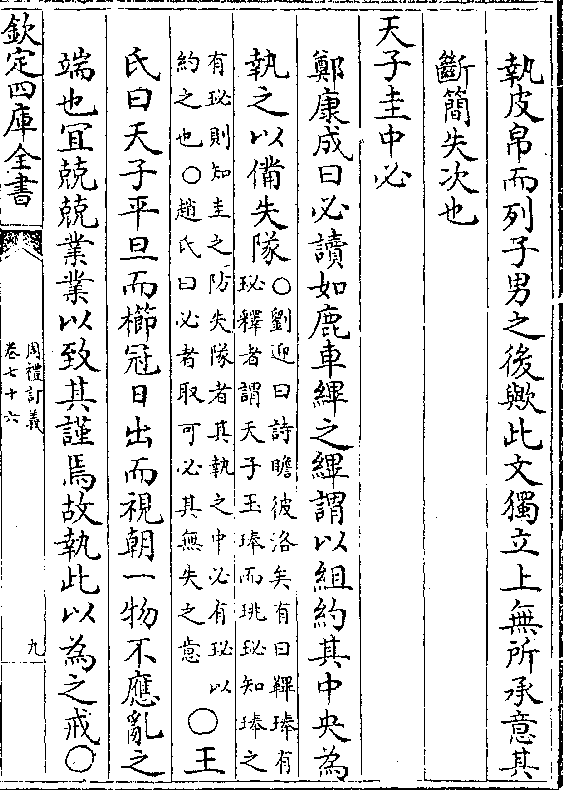 執皮帛而列子男之後歟此文獨立上無所承意其
斷簡失次也
天子圭中必
鄭康成曰必讀如鹿車縪之縪謂以組約其中央為
執之以備失隊〇劉迎曰詩瞻彼洛矣有曰鞸琫有
珌釋者謂天子玉琫而珧珌知琫之
有珌則知圭之防失隊者其執之中必有珌以
約之也〇趙氏曰必者取可必其無失之意〇王
氏曰天子平旦而櫛冠日出而視朝一物不應亂之
端也宜兢兢業業以致其謹焉故執此以為之戒〇
欽定四庫全書
周禮訂義
卷七十六
九